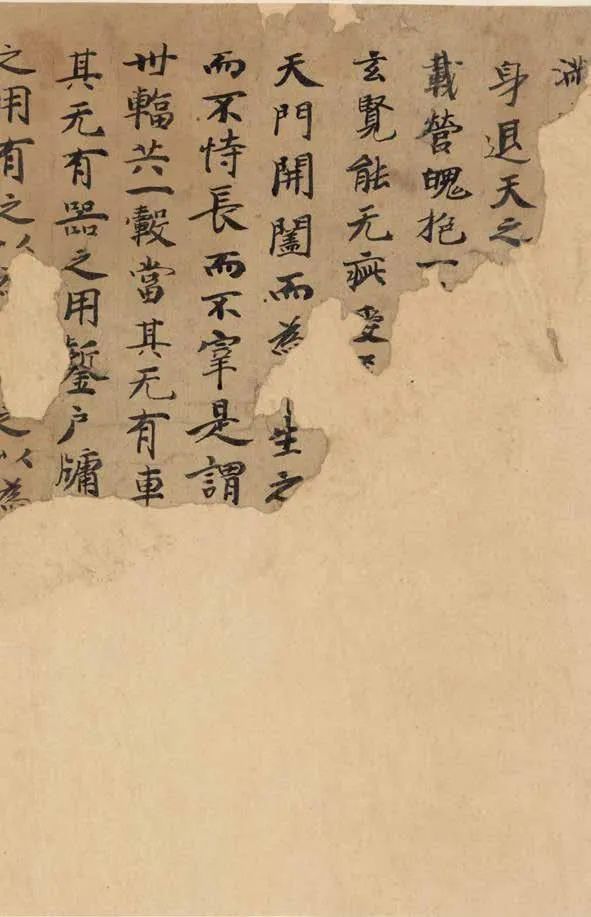 滿
身退天之
載營魄抱一
玄覽能无疵愛
天門開闔而為生之
而不恃長而不宰是謂
卅輻共一轂當其无有車
其无有器之用鑿戶牖
之用有之以之以為